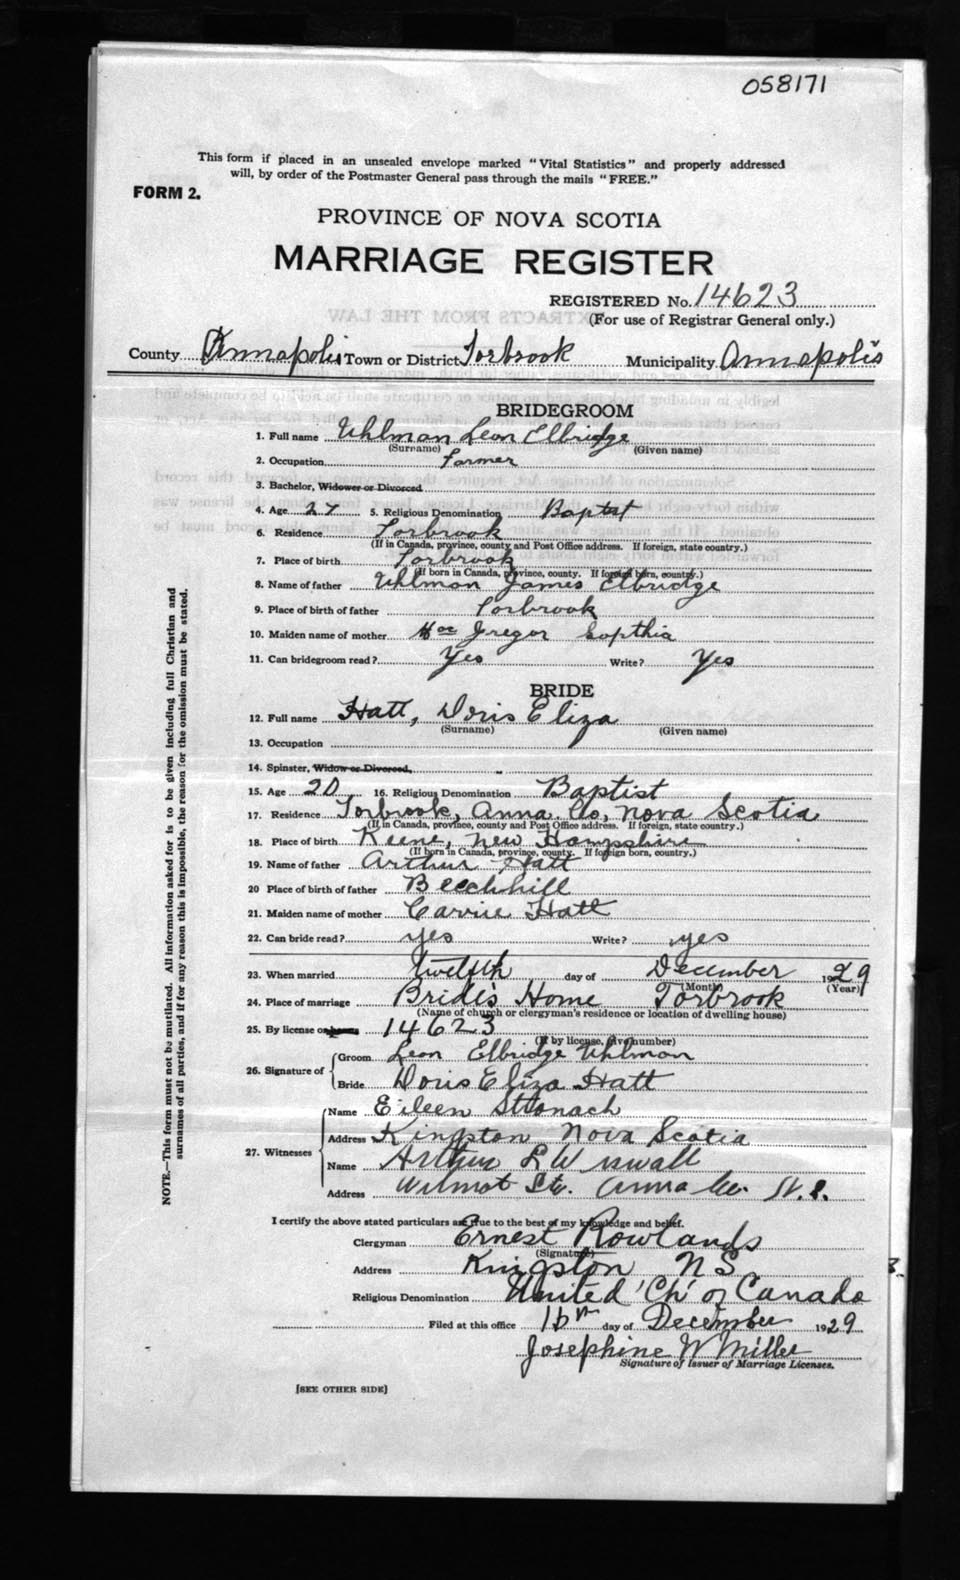 058171
This form if placed in an unsealed envelope marked "Vital Statistics" and properly addressed
will, by order of the Postmaster General pass through the mails "FREE."
FORM 2.
PROVINCE OF NOVA SCOTIA
MARRIAGE REGISTER
REGISTERED No. 14623
(For use of Registrar General only.)
County Annapolis Town or District Torbrook Municipality Annapolis
BRIDEGROOM
1. Full name Uhlman Leon Elbridge
(Surname) (Given name)
2. Occupation Farmer
3. Bachelor, Widower or Divorced
4. Age 27 5. Religious Denomination Baptst
6. Residence Torbrook
(If in Canada, province, county and Post Office address. If foreign, state country.)
7. Place of birth Torbrook
(If born in Canada, province, county. If foreign born, country.)
8. Name of father Uhlman James Elbridge
9. Place of birth of father Torbrook
10. Maiden name of mother Mac Gregor Sopthia
11. Can bridegroom read? Yes Write? Yes
BRIDE
12. Full name Hatt, Doris Eliza
(Surname) (Given name)
13. Occupation
14. Spinster, Widow or Divorced,
15. Age 20 16. Religious Denomination Baptist
17. Residence Torbrook, Anna. Co, Nova Scotia
(If in Canada, province, county and Post Office address. If foreign, state country.)
18. Place of birth Keene, New Hampshire
(If born in Canada, province, county. If foreign born, country.)
19. Name of father Arthur Hatt
20 Place of birth of father Beechhill
21. Maiden name of mother Carrie Hatt
22. Can bride read? yes Write? yes
23. When married twelfth day of December 1929
(Month) (Year)
24. Place of marriage Bride's Home Torbrook
(Name of church or clergyman's residence or location of dwelling house)
25. By license or 14623
(If by license, give number)
26. Signature of
Groom Leon Elbridge Uhlman
Bride Doris Eliza Hatt
27. Witnesses
Name Eileen Stronach
Address Kingston Nova Scotia
Name Arthur L Wiswall
Address Wilmot Stn. Anna Co. N.S.
I certify the above stated particulars are true to the best of my knowledge and belief.
Clergyman Ernest Rowlands
(Signature)
Address Kingston NS
Religious Denomination United 'Ch' of Canada
Filed at this office 16th day of December 1929
Josephine W Miller
Signature of Issuer of Marriage Licenses.
[SEE OTHER SIDE]
NOTE.—This form must not be mutilated. All information asked for is to be given including full Christian and
surnames of all parties, and if for any reason this is impossible, the reason for the omission must be stated.